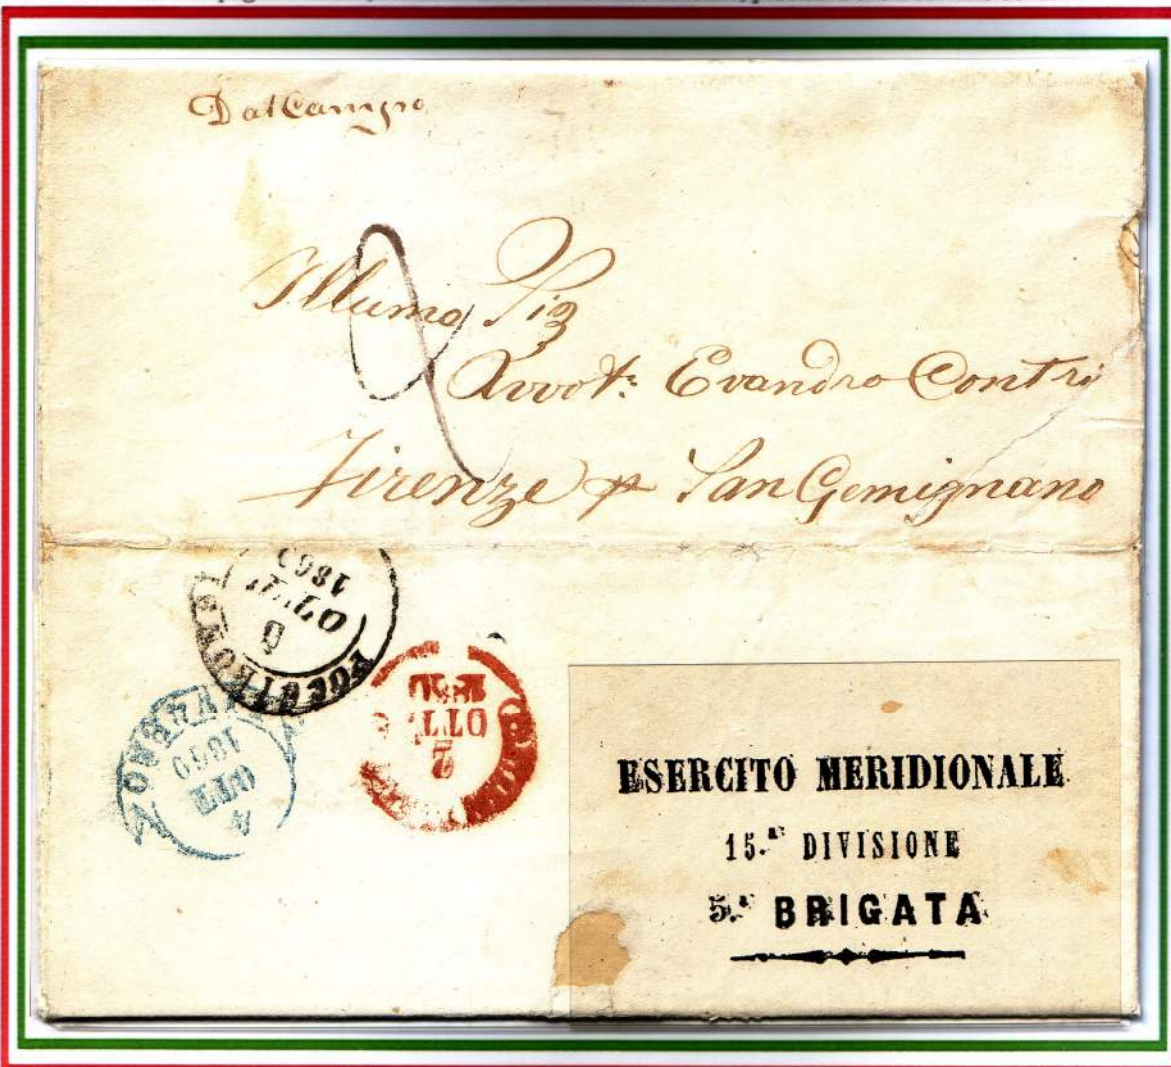 Dal Campo
Illumo Sig
Avvot: Evandro Contri
Firenze p San Gemignano
OTT
LIVORNO
OTT
2
OTT
ESERCITO MERIDIONALE
15.a DIVISIONE
5.a BRIGATA